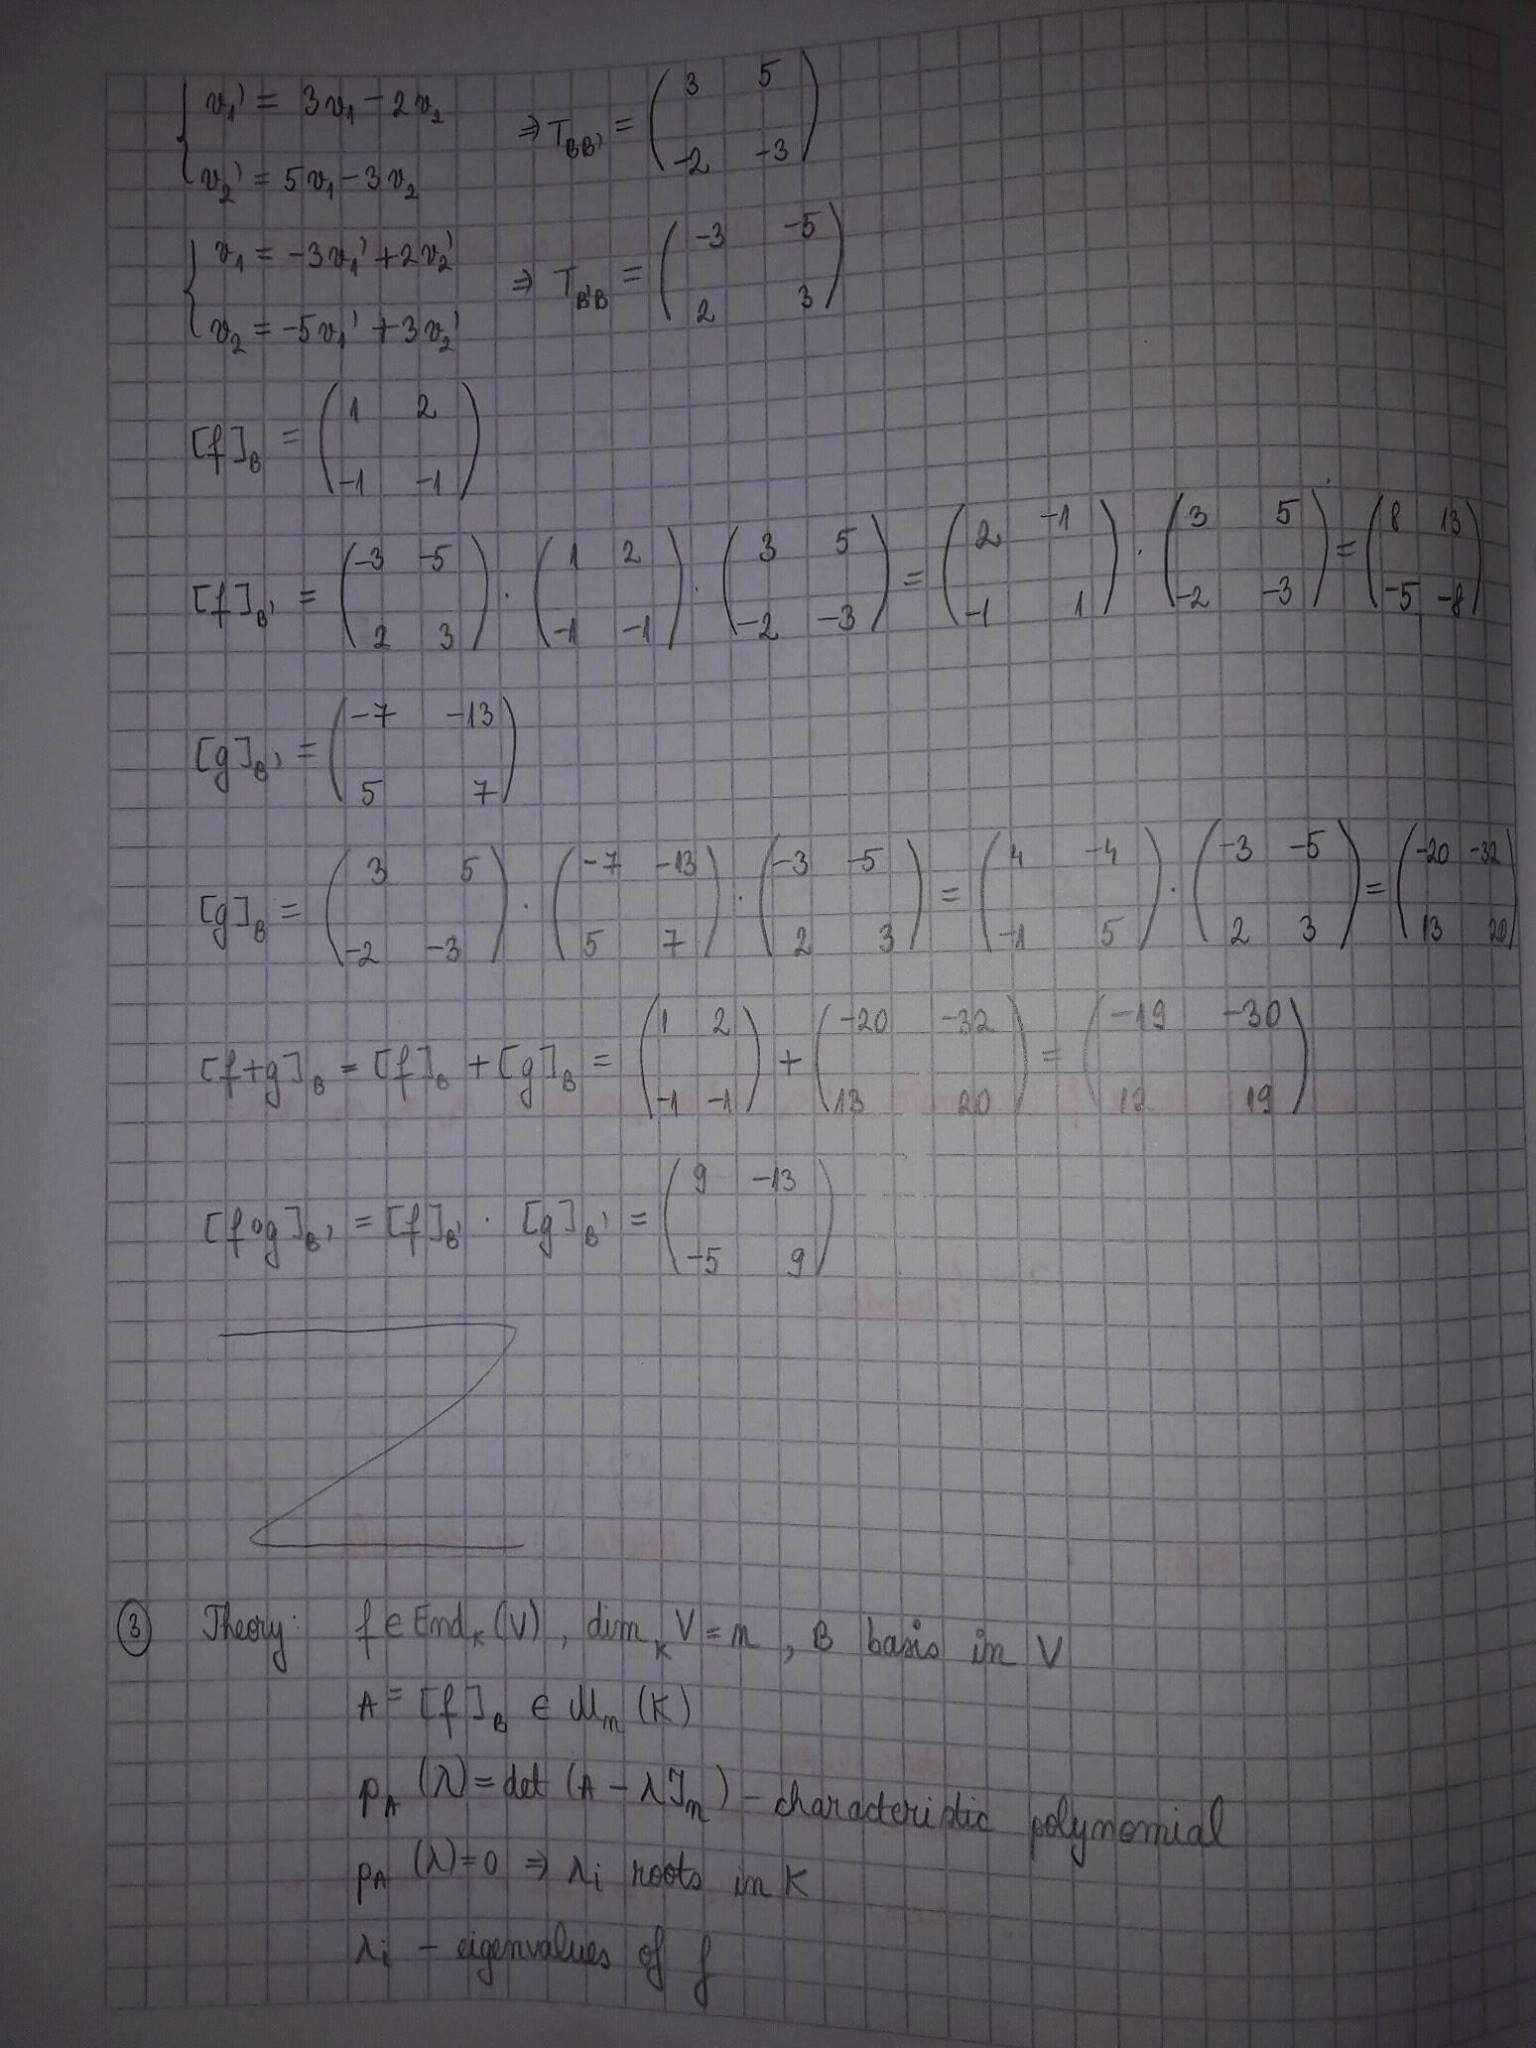 { v₁' = 3v₁ - 2v₂
v₂' = 5v₁ - 3v₂ ⇒ T_BB' = ( 3 5 ; -2 -3 )
{ v₁ = -3v₁' + 2v₂'
v₂ = -5v₁' + 3v₂' ⇒ T_B'B = ( -3 -5 ; 2 3 )
[f]_B = ( 1 2 ; -1 -1 )
[f]_B' = ( -3 -5 ; 2 3 ) · ( 1 2 ; -1 -1 ) · ( 3 5 ; -2 -3 ) = ( 2 -1 ; -1 1 ) · ( 3 5 ; -2 -3 ) = ( 8 13 ; -5 -8 )
[g]_B' = ( -7 -13 ; 5 7 )
[g]_B = ( 3 5 ; -2 -3 ) · ( -7 -13 ; 5 7 ) · ( -3 -5 ; 2 3 ) = ( 4 -4 ; -1 5 ) · ( -3 -5 ; 2 3 ) = ( -20 -32 ; 13 20 )
[f+g]_B = [f]_B + [g]_B = ( 1 2 ; -1 -1 ) + ( -20 -32 ; 13 20 ) = ( -19 -30 ; 12 19 )
[f∘g]_B' = [f]_B' · [g]_B' = ( 9 -13 ; -5 9 )
③ Theory: f ∈ End_K (V), dim_K V = n, B basis in V
A = [f]_B ∈ M_n (K)
p_A (λ) = det (A - λI_n) - characteristic polynomial
p_A (λ) = 0 ⇒ λi roots in K
λi - eigenvalues of f